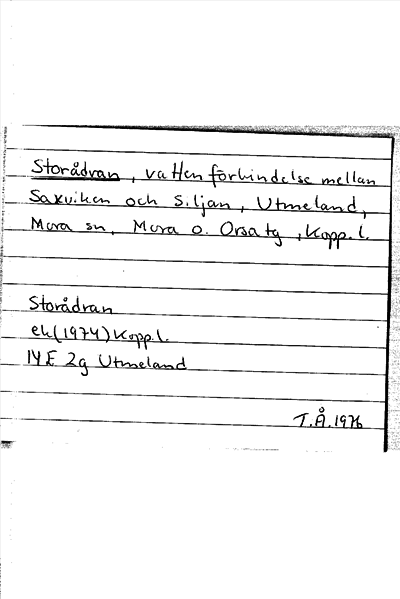 Storådran, vattenförbindelse mellan
Saxviken och Siljan, Utmeland,
Mora sn, Mora o. Orsa tg, Kopp. l.
Storådran
ek (1974) Kopp. l.
14E 2g Utmeland
T.Å. 1976